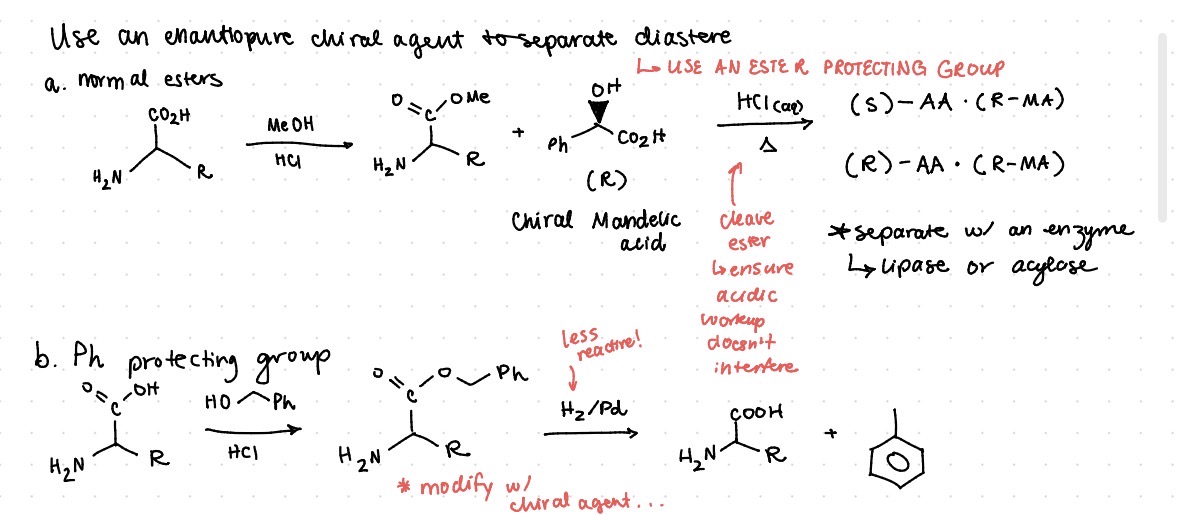 Use an enantiopure chiral agent to separate diastere
↳ USE AN ESTER PROTECTING GROUP
a. normal esters
CO2H
H2N
R
MeOH
HCl
O
C
OMe
H2N
R
+
OH
Ph
CO2H
(R)
Chiral Mandelic
acid
HCl (aq)
Δ
(S)-AA · (R-MA)
(R)-AA · (R-MA)
cleave
ester
↳ ensure
acidic
workup
doesn't
interfere
*separate w/ an enzyme
↳ lipase or acylase
b. Ph protecting group
O
OH
C
H2N
R
HO
Ph
HCl
O
O
Ph
C
H2N
R
* modify w/
chiral agent...
less
reactive!
H2/Pd
COOH
H2N
R
+